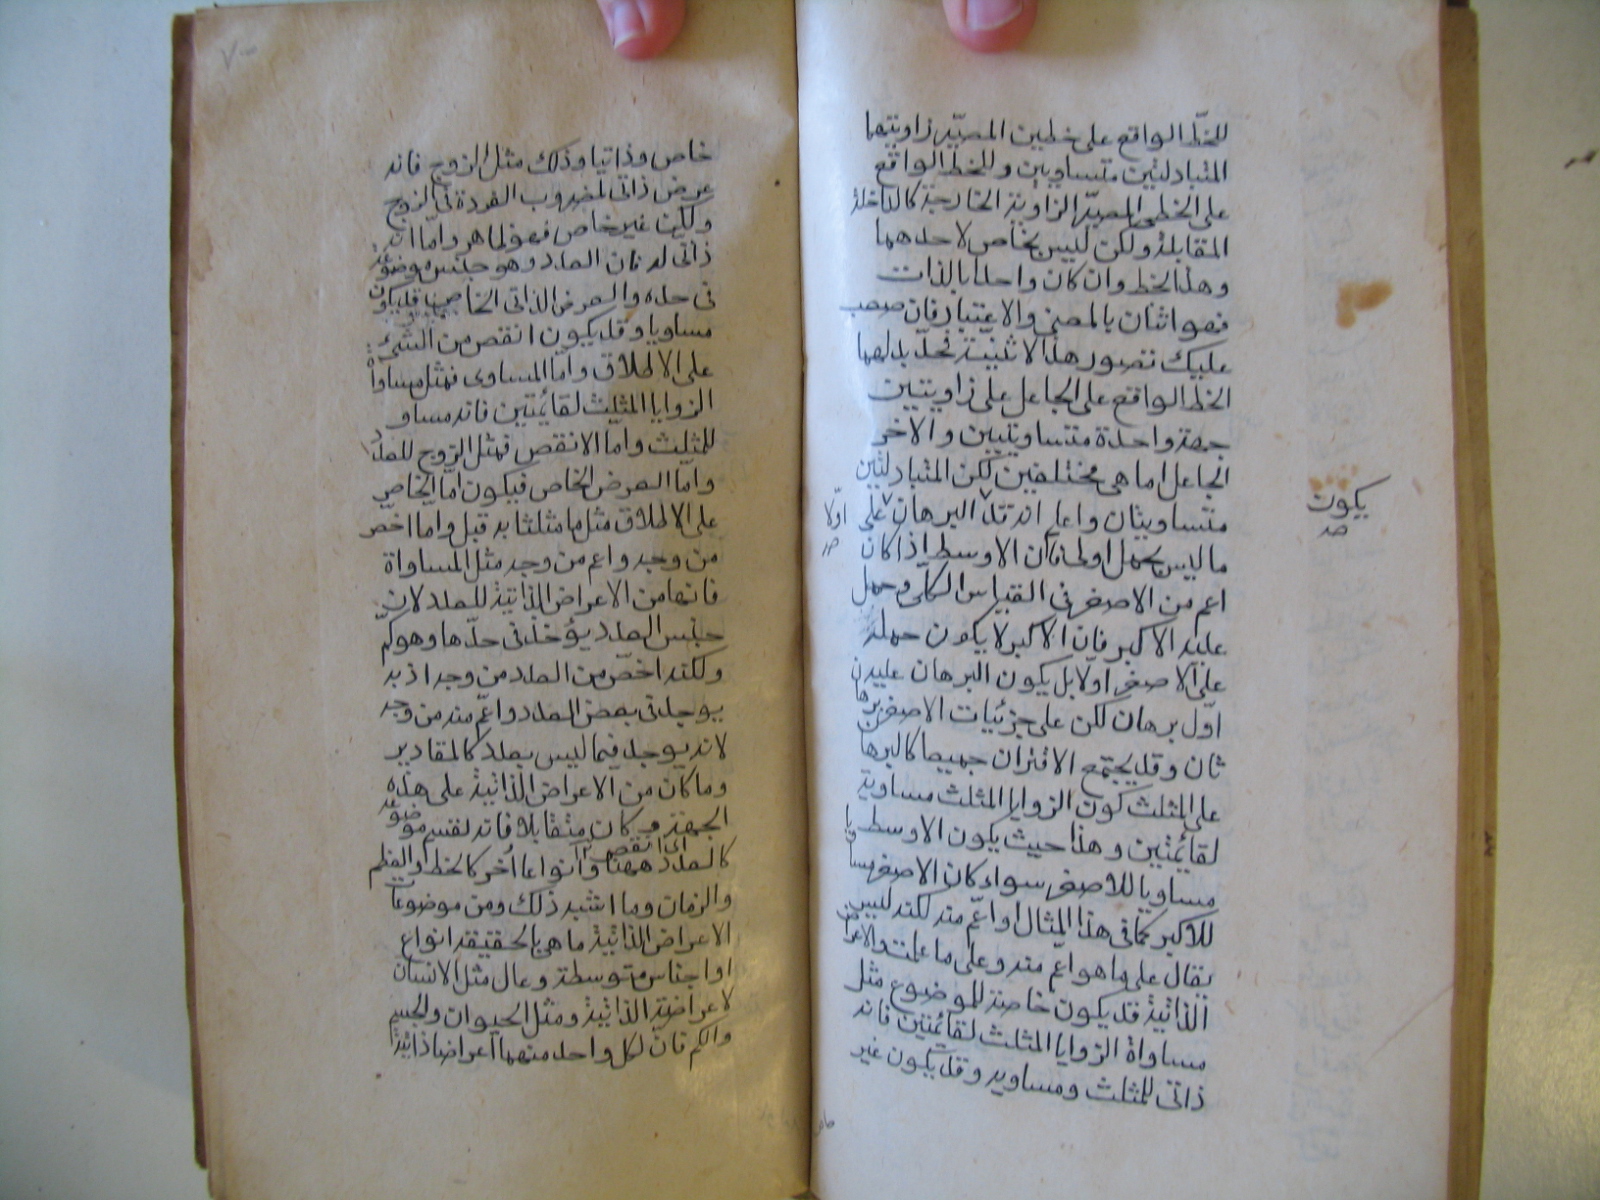 للخطّ الواقع على خطين المصيّر زاويتيهما
المتبادلتين متساويتين وللخط الواقع
على الخطى المصيّر الزاوية الخارجة كالداخلة
المقابلة ولكن ليس بخاص لاحدهما
وهذا الخط وان كان واحدا بالذات
فهو اثنان بالمعنى والاعتبار فان صعب
عليك تصور هذا الاثنينية فخذ بدلهما
الخط الواقع على الجاعل على زاويتين
جهة واحدة متساويتين والآخر
الجاعل اما هي مختلفين لكن المتبادلتين
متساويتان واعلم انه قد البرهان على
ما ليس بحمل اولى فان الاوسط اذا كان
اعم من الاصغر فى القياس الكلى وحمل
عليه الاكبر فان الاكبر لا يكون حمله
على الاصغر اولا بل يكون البرهان عليه
اوّل برهان لكن على جزئيات الاصغر برها
ثان وقد يجتمع الاقتران جميعا كالبرها
على المثلث كون الزوايا المثلث مساوية
لقائمتين وهذا حيث يكون الاوسط
مساويا للاصغر سواء كان الاصغر مسا
للاكبر كما فى هذا المثال او اعم منه لكنه ليس
يقال على ما هو اعم منه وعلى ما علمت والاعرا
الذاتية قد يكون خاصة للموضوع مثل
مساواة الزوايا المثلث لقائمتين فانه
ذاتى للمثلث ومساويه وقد يكون غير
يكون
صه
اوّلا
صه
خاص وذاتيا وذلك مثل الزوج فانه
عرض ذاتى لمضروب الفرد فى الزوج
ولكن غير خاص فهو ظاهر واما انه
ذاتى له فان العدد وهو جنس موضوعه
فى حده والعرض الذاتى الخاص قد يكون
مساويا وقد يكون انقص من الشئ
على الاطلاق واما المساوى فمثل مساواة
الزوايا المثلث لقائمتين فانه مساو
للمثلث واما الانقص فمثل الزوج للعدد
واما العرض الخاص فيكون اما الخاص
على الاطلاق مثل ما مثلنا به قبل واما اخص
من وجه واعم من وجه مثل المساواة
فانها من الاعراض الذاتية للعدد لان
جنس العدد يؤخذ فى حدّها وهو كمّ
ولكنه اخصّ من العدد من وجه اذ به
يوجد فى بعض العدد واعمّ منه من وجه
لانه يوجد فيما ليس بعدد كالمقادير
وما كان من الاعراض الذاتية على هذه
الجهة وكان متقابلا فانه لقسم موضوعه
كالعدد ههنا وانواعا اخر كالخط والعظم
اى انقص
والزمان وما اشبه ذلك ومن موضوعات
الاعراض الذاتية ما هى بالحقيقة انواع
او اجناس متوسطة وعال مثل الانسان
لاعراضه الذاتية ومثل الحيوان والجسم
والكم فان لكل واحد منهما اعراضا ذاتية